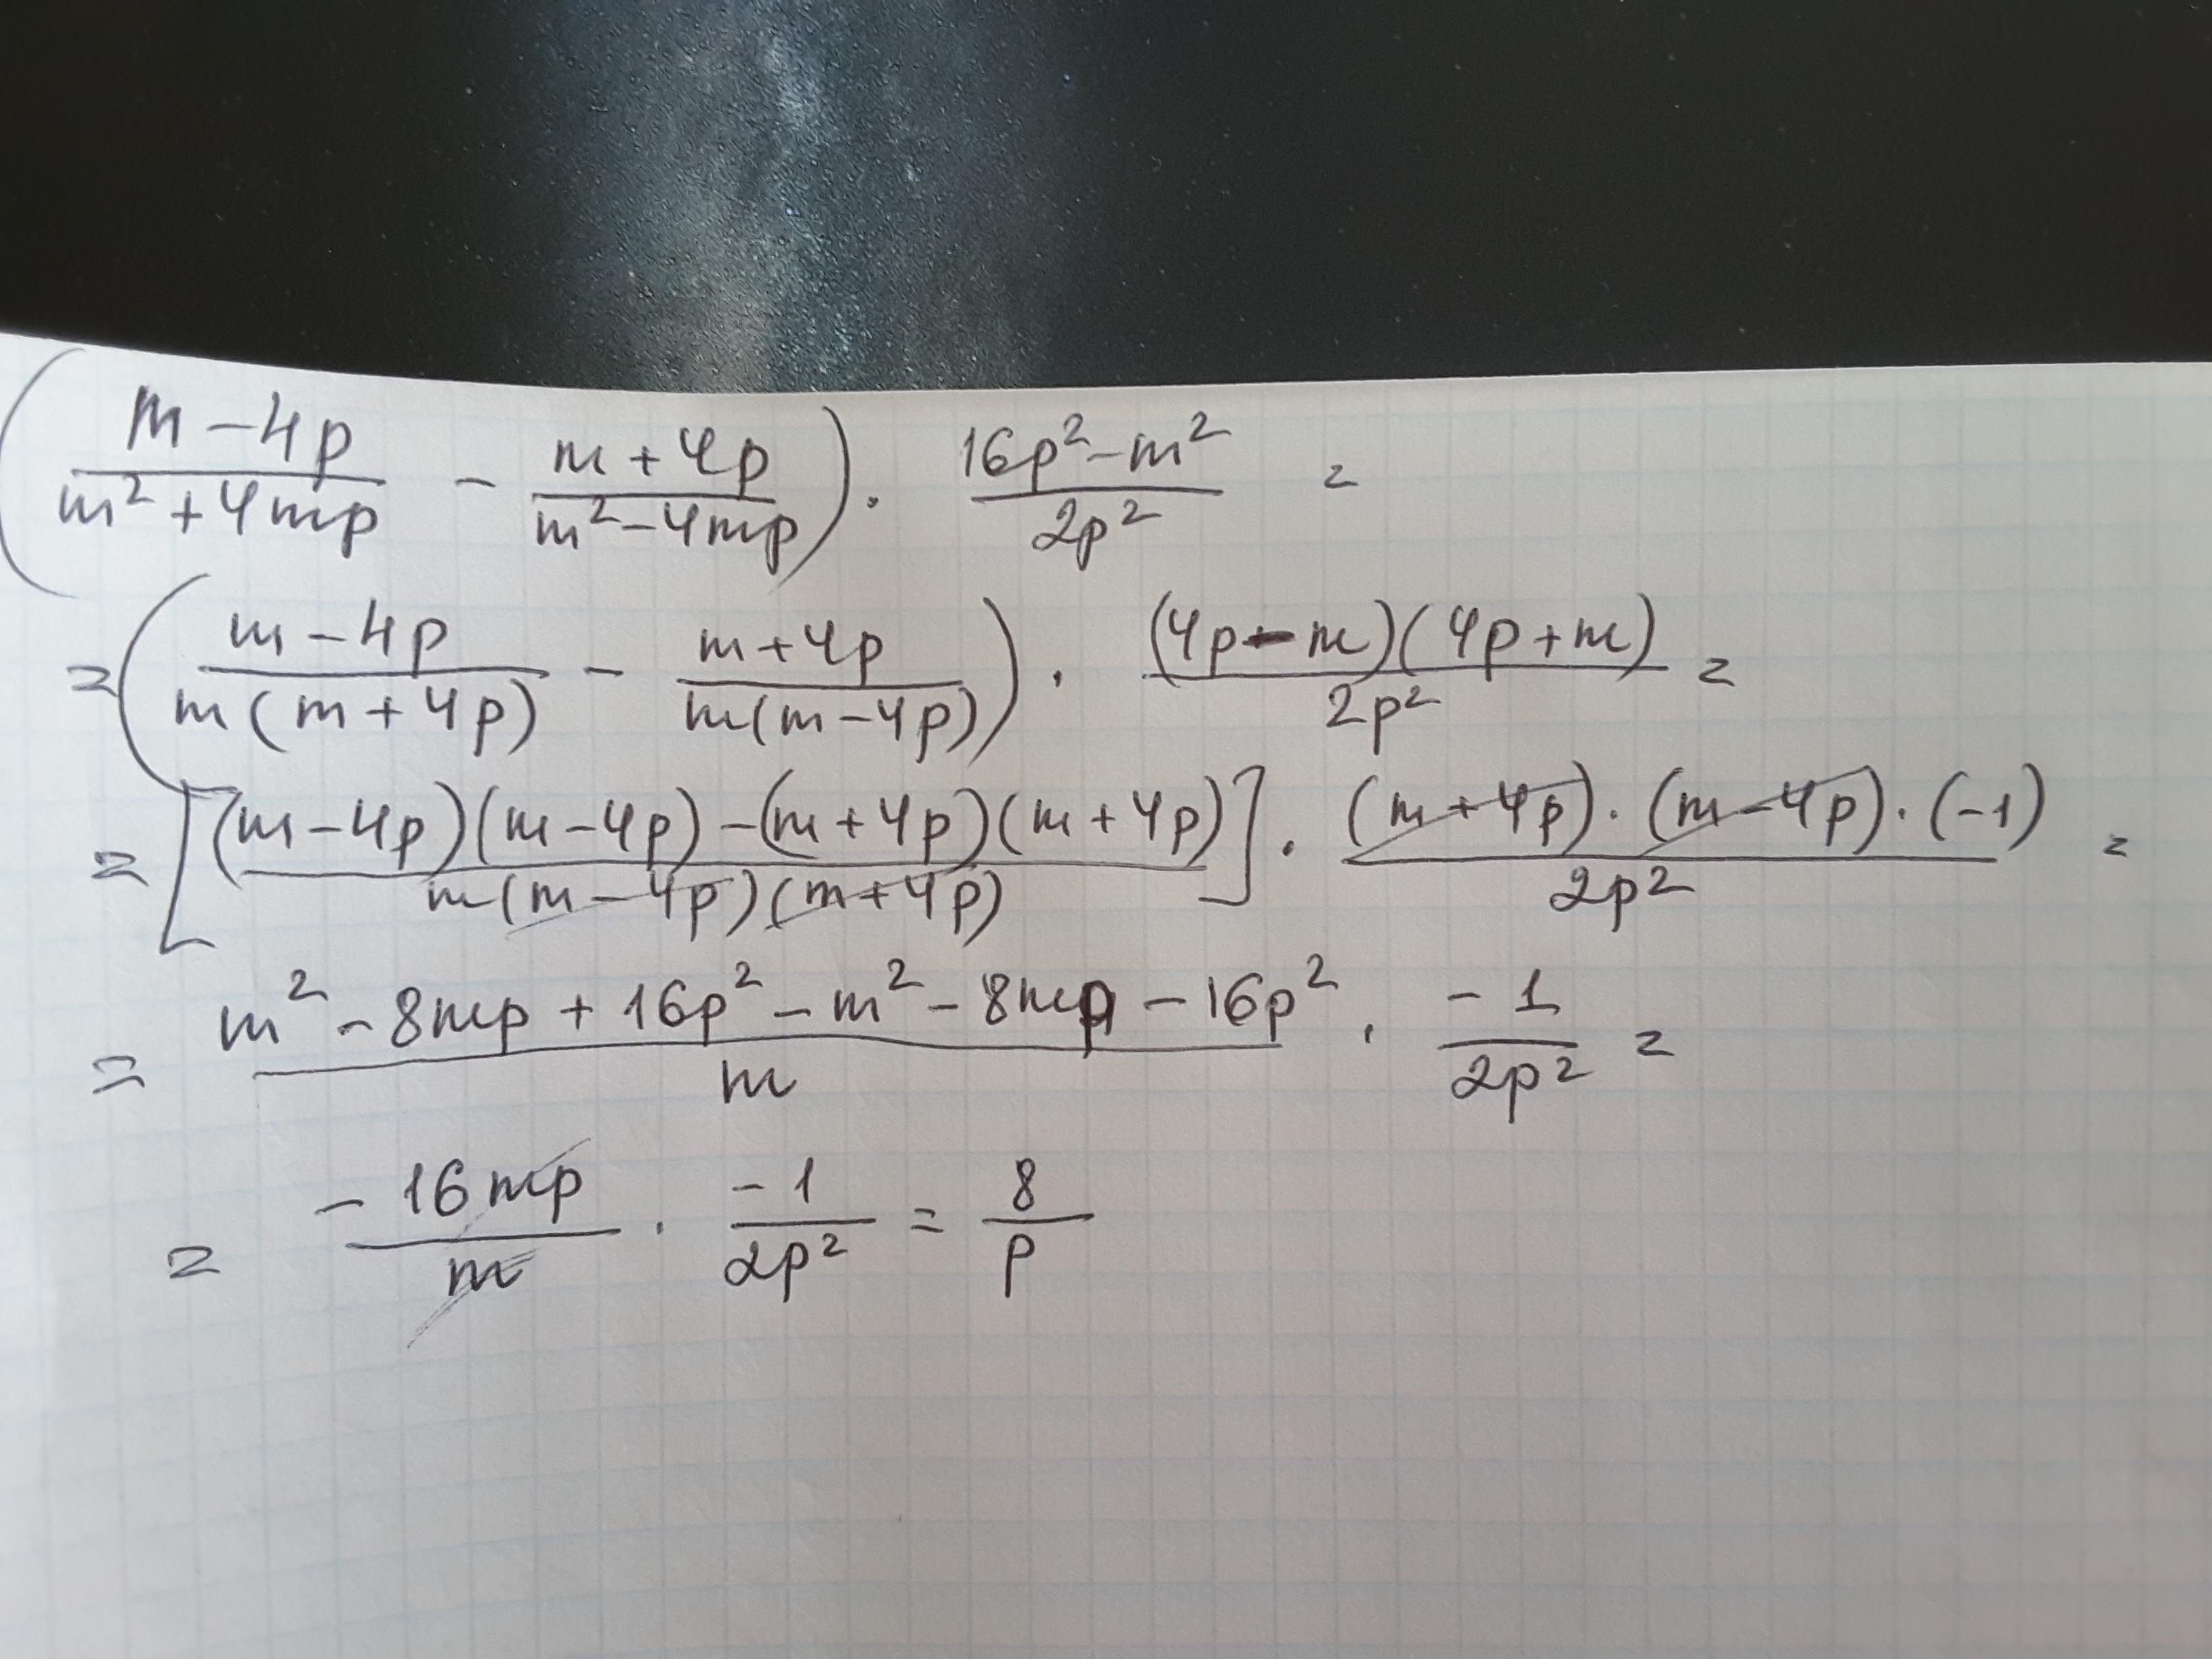 (m-4p/m²+4mp - m+4p/m²-4mp) · 16p²-m²/2p² =
= (m-4p/m(m+4p) - m+4p/m(m-4p)) · (4p-m)(4p+m)/2p² =
= [(m-4p)(m-4p)-(m+4p)(m+4p)/m(m-4p)(m+4p)] · (m+4p)·(m-4p)·(-1)/2p² =
= m²-8mp+16p²-m²-8mp-16p²/m · -1/2p² =
= -16mp/m · -1/2p² = 8/p